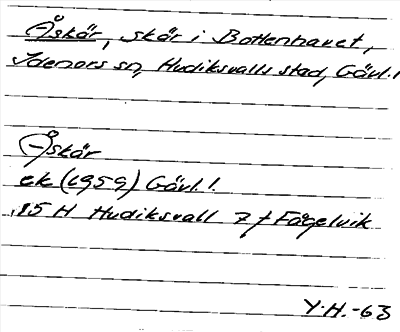 Åskär, skär i Bottenhavet,
Idenors sn, Hudiksvalls stad, Gävl. l.
Åskär
ek (1959) Gävl. l.
15 H Hudiksvall 7 f Fågelvik
Y.H.-63